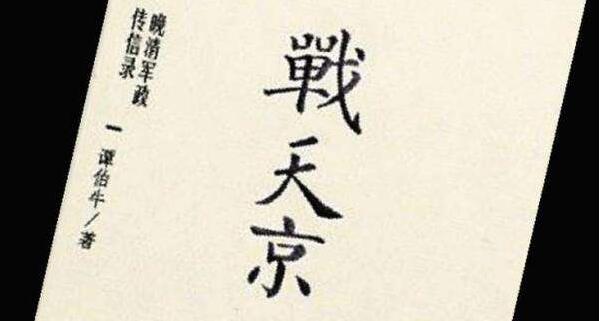 戰天京
晚清军政
传信录
一
谭伯牛/著